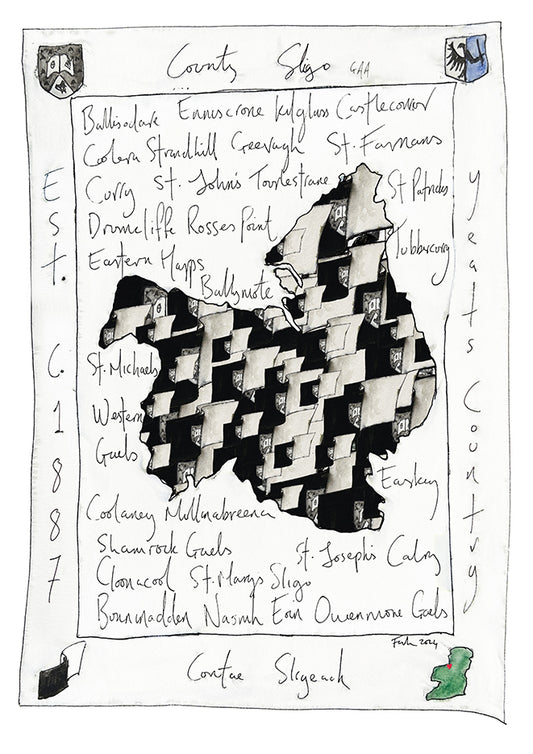 County Sligo GAA
Ballisodare Enniscrone Kilglass Castleconnor
Coolera Strandhill Geevagh St. Farnans
Curry St. John's Tourlestrane St Patricks
Drumcliffe Rosses Point Tubbercurry
Eastern Harps
Ballymote
St. Michaels
Western
Gaels
Easkey
Coolaney Mullinabreena
Shamrock Gaels St. Joseph's Calry
Cloonacool St. Marys Sligo
Bunninadden Naomh Eoin Owenmore Gaels
Contae Shligeach
Est. C. 1887
Yeats Country
2024